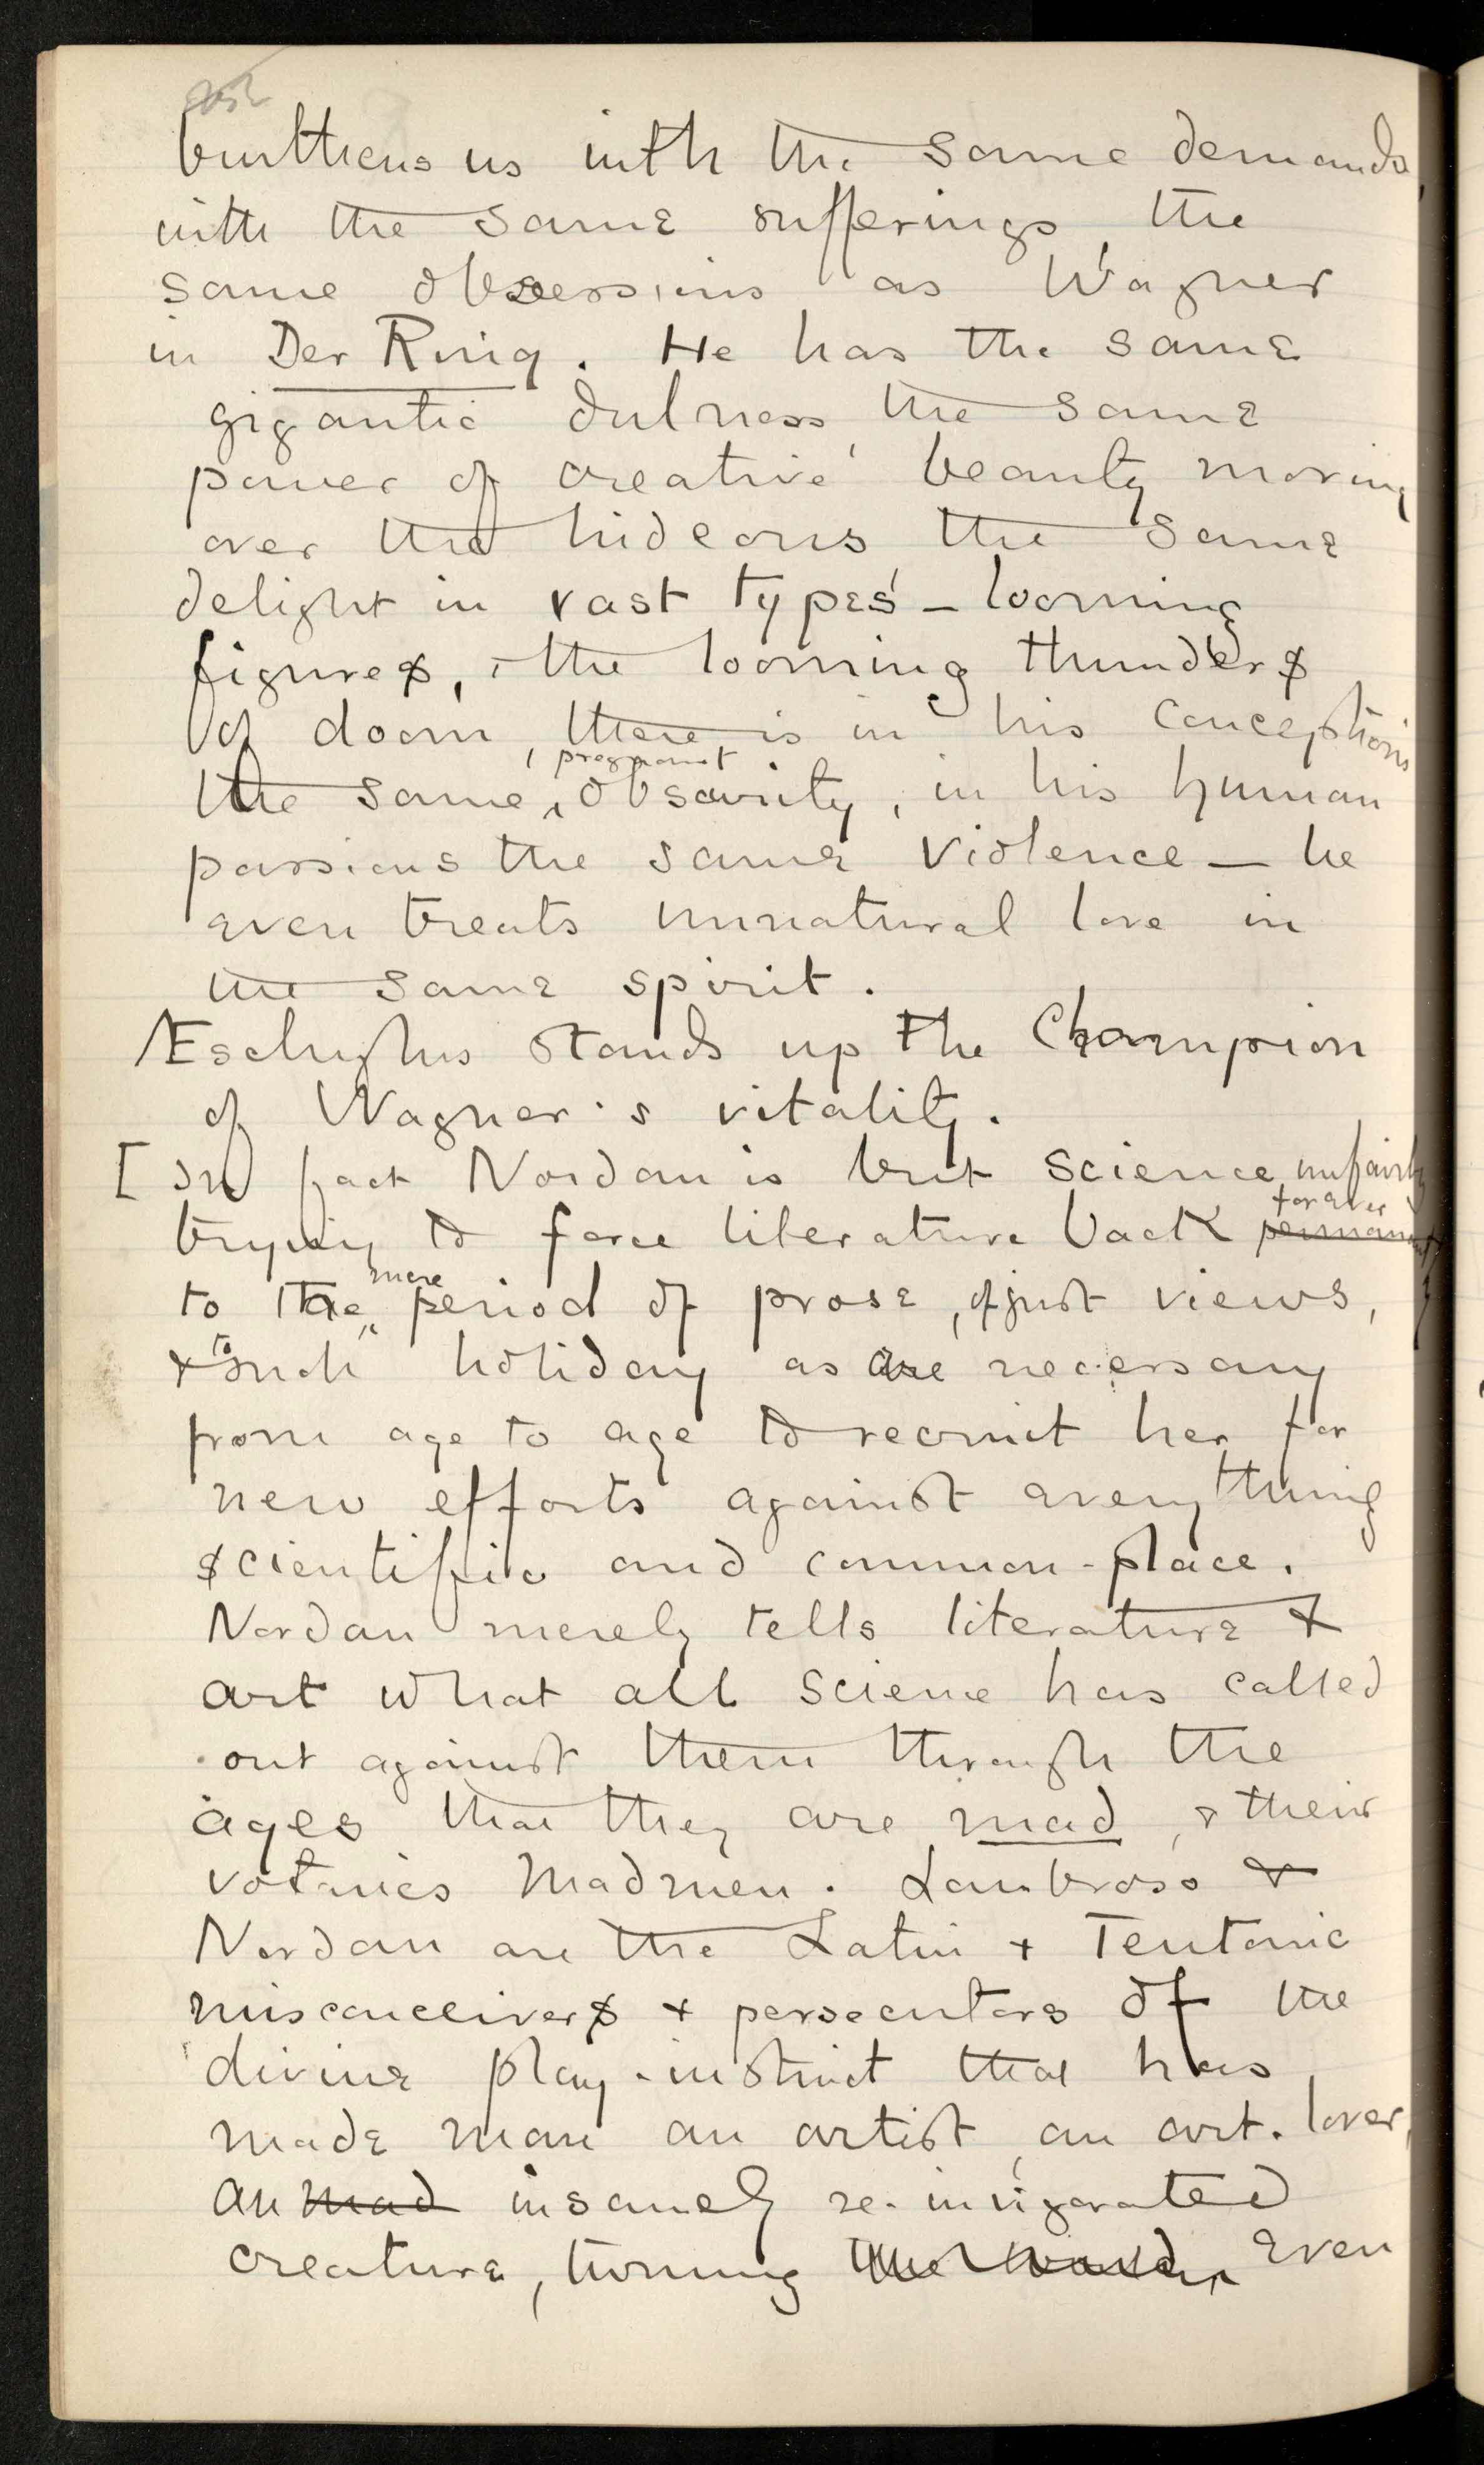 burthens us with the same demands,
with the same sufferings, the
same obsessions as Wagner
in Der Ring. He has the same
gigantic dulness, the same
power of creative beauty moving
over the hideous the same
delight in vast types – looming
figures, – the looming thunders
of doom, there is in his conceptions
pregnant
the same obscurity, in his human
passions the same violence – he
even treats unnatural love in
the same spirit.
Æschylus stands up the Champion
of Wagner's vitality.
[In fact Nordau is but science unfairly
for ever
trying to force literature back permanently
mere
to the period of prose, of just views,
to
& such holiday as are necessary
from age to age to recruit her for
new efforts against everything
scientific and common-place.
Nordau merely tells literature &
art what all science has called
out against them through the
ages that they are mad, & their
votaries madmen. Lombroso &
Nordau are the Latin & Teutonic
misconceivers & persecutors of the
divine play-instinct that has
made man an artist, an art-lover,
an mad insanely re-invigorated
creature, turning the world, even